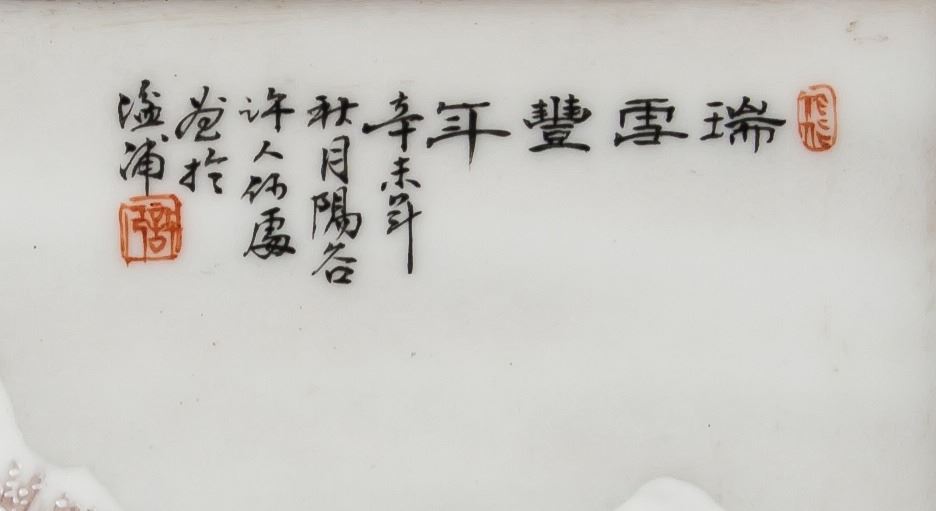 瑞雪豐年
辛未年
秋月陽谷
許人何處
畫於
湓浦